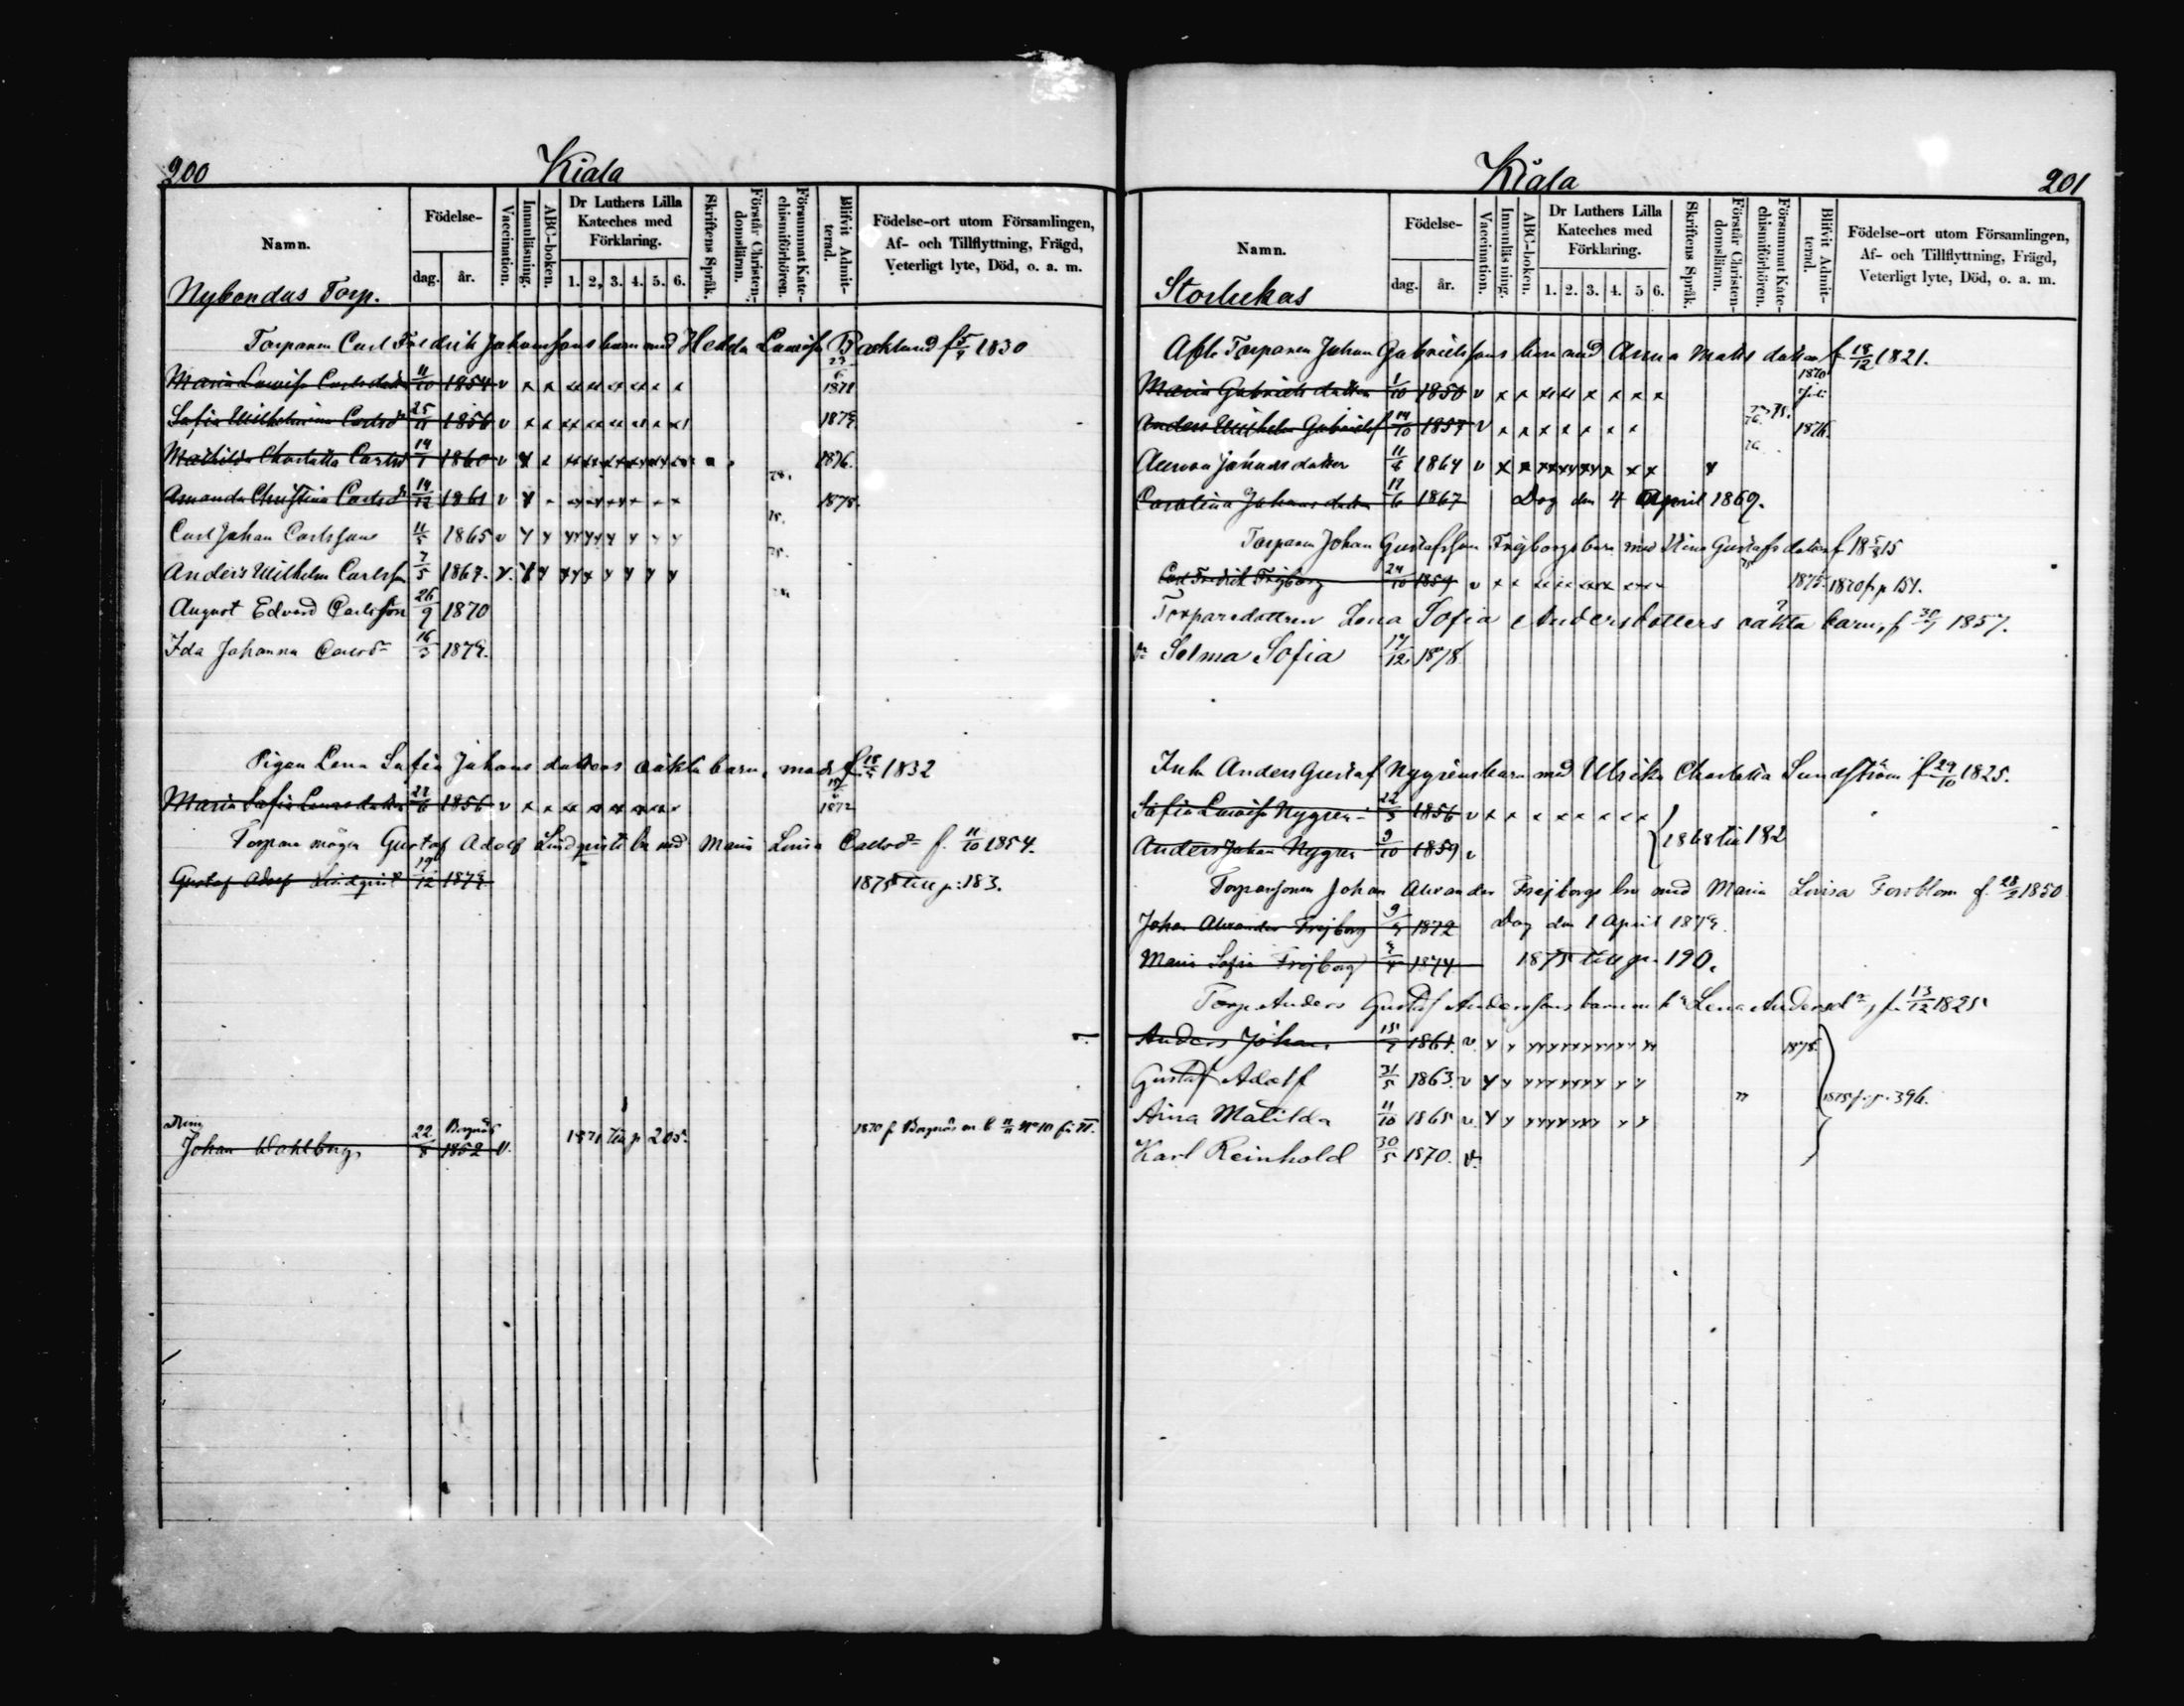 200 Kiala
Namn. Födelse- dag. år. Vaccination. Innanläsning. ABC-boken. Dr Luthers Lilla Kateches med Förklaring. 1. 2. 3. 4. 5. 6. Skriftens Språk. Förstår Christendomsläran. Försummat Katechismiförhören. Blifvit Admitterad. Födelse-ort utom Församlingen, Af- och Tillflyttning, Frägd, Veterligt lyte, Död, o. a. m.
Nybondas Torp.
Torparen Carl Fredrik Johanssons barn med Hedda Lowisa Backlund f. 5/4 1830
Maria Lowisa Carlsdotter 11/10 1854 v 1871
Sofia Wilhelmina Carlsdr 25/11 1856 v
Mathilda Charlotta Carlsd 14/1 1860 v 1876.
Amanda Christina Carlsdr 14/12 1861 v 1878.
Carl Johan Carlsson 11/5 1865 v
Anders Wilhelm Carlsson 7/5 1867. v.
August Edvard Carlsson 26/9 1870
Ida Johanna Carlsdr 16/3
Pigan Lena Sofia Johansdotters oäkta barn, modr f. 1832
Maria Sofia 1856 v 1872
Torpare mågen Gustaf Adolf Lindqvists br med Maria Lovisa Carlsdr f. 11/10 1854.
Gustaf Adolf Lindqvist 19/12 1875 till p: 183.
Dreng
Johan Wahlberg 22/8 Borgnäs 1852 v. 1871 till p 205. 1870 f. Borgnäs
Kiala 201
Namn. Födelse- dag. år. Vaccination. Innanläsning. ABC-boken. Dr Luthers Lilla Kateches med Förklaring. 1. 2. 3. 4. 5 6. Skriftens Språk. Förstår Christendomsläran. Försummat Katechismiförhören. Blifvit Admitterad. Födelse-ort utom Församlingen, Af- och Tillflyttning, Frägd, Veterligt lyte, Död, o. a. m.
Storlukas
Afl. Torparen Johan Gabrielssons barn med Anna Matsdotter f. 18/12 1821.
Maria Gabrielsdotter 1/10 1850 v 1870
Anders Wilhelm Gabrielss 14/10 1857 v 1876.
Aurora Johansdotter 11/8 1864 v
Carolina Johansdotter 17/6 1867 Dog den 4 April 1869.
Torparen Johan Gustafsson Frejborgs barn med Stina Gustafsdotter f. 1815
Carl Fredrik Frejborg 24/10 1859 v 1875. 1870 fr p 151.
Torparedottren Lena Sofia Andersdotters oäkta barn, f. 1857.
Dr Selma Sofia 17/12 1878
Inh Anders Gustaf Nygrens barn med Ulrika Charlotta Sundström f. 29/10 1825.
Sofia Lowisa Nygren 22/3 1856 v
Anders Johan Nygren 9/10 1859 v 1868 till 182
Torparsonen Johan Alexander Frejborgs br med Maria Lovisa Forsblom f. 28/2 1850
Johan Alexander Frejborg 1872 Dog den 1 April
Maria Sofia Frejborg 1874 1875 till p. 190.
Torp. Anders Gustaf Anderssons barn m. h. Lena Andersdr, f. 13/12 1825
Anders Johan 1861. v. 1878
Gustaf Adolf 31/5 1863. v
Aina Matilda 11/10 1865 v. 1875 fr. p. 396.
Karl Reinhold 30/5 1870. v.